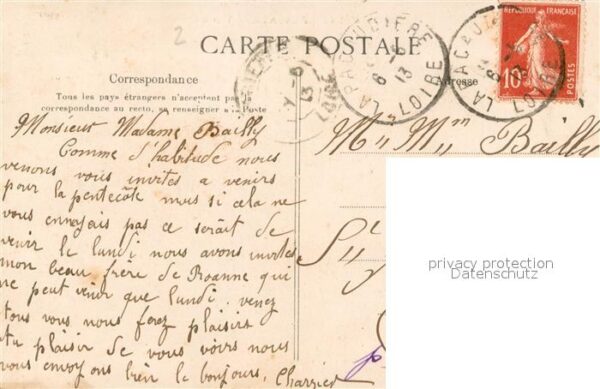 2
CARTE POSTALE
RÉPUBLIQUE FRANÇAISE
10c
POSTES
LA PACAUDIÈRE
6 -5
13
LOIRE
LA PACAUDIÈRE
LOIRE
13
LOIRE
Correspondance
Adresse
Tous les pays étrangers n'acceptent pas la
correspondance au recto, se renseigner à la Poste
Monsieur Madame Bailly
Comme d'habitude nous
venons vous invites a venirs
pour la pentecôte mais si cela ne
vous ennuyais pas ce serait de
venir le lundi nous avons invites
mon beau frère de Roanne qui
ne peut venir que lundi. venez
tous vous nous ferez plaisirs
Au plaisir de vous voirs nous
vous envoyons bien le bonjours. Charrier
Mr Mm Bailly
St
privacy protection
Datenschutz